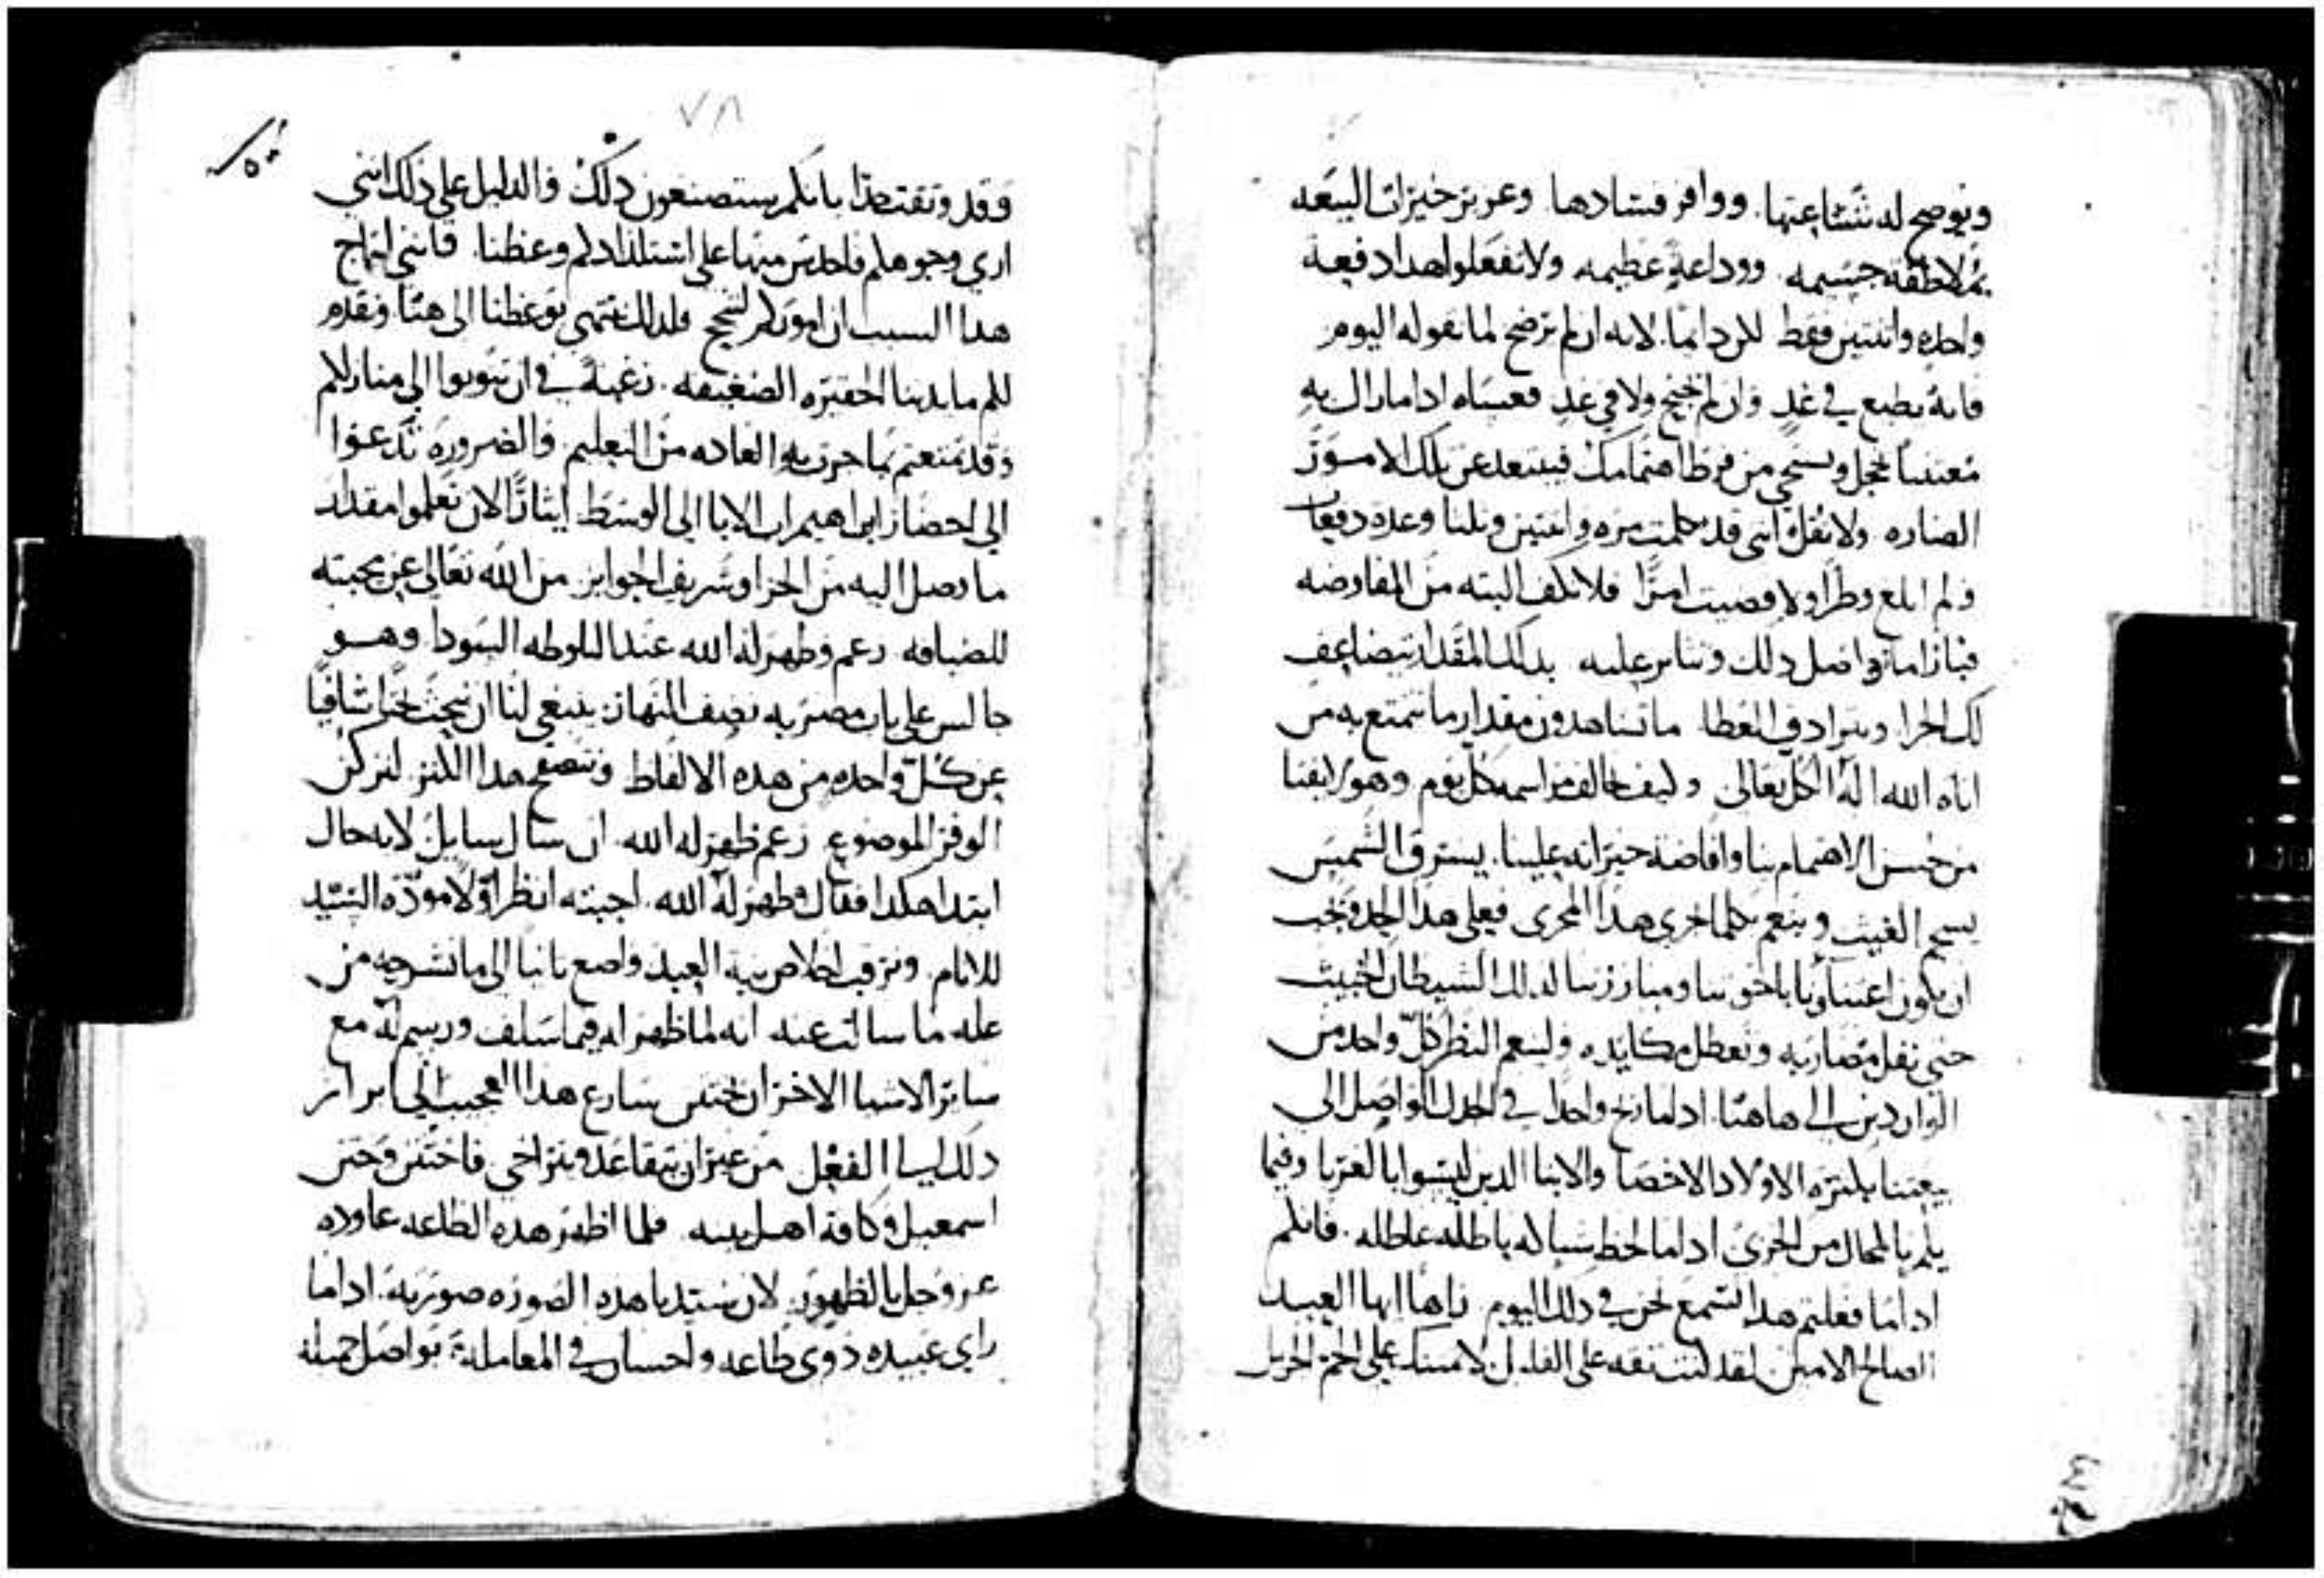 ونوضح له شناعتها. ووافر فسادها وعزيز خيرات البيعه
بملاطفه جسيمه. ووداعة عظيمه ولا تفعلوا هدا دفعة
واحده واتنتين فقط للن دايما. لانه ان لم ترضخ لما تقوله اليوم
فانه يطيع في غدٍ وان لم يجنح ولا في غدٍ فعساه اداما راك به
معتنيا يخجل ويستحي من فرط اهتمامك فيبتعد عن تلك الامور
الضاره ولا تقل انني قد كلمت مره واتنتين وتلتا وعدة دفعات
ولم ابلغ وطرًا ولا قضيت امرًا فلا تكف البته من المفاوضه
فبازا ما تواصل دلك وتتابر عليه بدلك المقدار يتضاعف
لك الجزا ويترادف العطا ما تشاهدون مقدار ما نتمتع به من
اناه الله اله الكل تعالى وليف نخالف مراسمه كل يوم وهو رايفنا
من حسن الاهتمام بنا وافاضة خيراته علينا. يشرق الشمس
يسجم الغيث وينعم بكلما اجرى هدا المجرى فعلى هدا الحدو يجب
ان يكون اعتناونا باخوتنا ومبارزتنا لدلك الشيطان الخبيث
حتى نفل مضاربه ونعطل مكايده ولينعم النظر كل واحد من
الواردين الى هاهنا. اداما ربح واحدًا في الجدل الواصل الى
بيعتنا بكثرة الاولاد الاخصا والابنا الدين ليسوا بالغربا وفيما
يلم بالمحال من الخزي اداما لحظ شباكه باطله عاطله. فانلم
اداما فعلتم هدا تسمع نحن في دلك اليوم. ناهًا ايها العبد
الصالح الامين لقد كنت تقه على القليل لامنتك على الجم الجزيل
٧٨
وقد وتقت هدا بانكم ستصنعون دلك والدليل على دلك انني
ارى وجوهلم فاحدس منها على استلدادلم وعظنا. فانني انهاج
هدا السبب ان اموركم لتنجح فلدلك ننتهي بوعظنا الى هنا ونقدم
للم مايدتنا الحقيره الضعيفه. رغبةً في ان تتوبوا الى منازللم
وقد تمتعتم بما جرت به العاده من التعليم والضروره تدعوا
الى احضار ابراهيم اب الابا الى الوسط ايثارًا لان تعلموا مقدار
ما وصل اليه من الجزا وشريف الجوايز من الله تعالى عن محبته
للضيافه زعم وظهر له الله عند البلوطه السودا وهو
جالس على باب مضربه نصف النهار. ينبغي لنا ان نبحث بحثًا شافيًا
عن كل واحده من هده الالفاظ ونتصفح هدا اللنز لنركن
الوفر الموضوع زعم ظهر له الله. ان سال سايل لايه حال
ابتدا هكدا فقال وظهر له الله. اجبته انظر اولًا مودة السيد
للانام وترقب اخلاص نية العبد واصغ تانيا الى ما نشرحه من
عله ما سالت عنه انه لما ظهر له فيما سلف ورسم له مع
ساير الاشيا الاخر ان يختتن سارع هدا العجيب الى ابراز
دلك ايسا الفعل من غير ان يتقاعد ويتراخى فاختتن وختن
اسمعيل وكافة اهل بيته فلما اظهر هده الطاعه عاوده
عز وجل بالظهور. لان سيدنا هده الصوره صورته. اداما
راى عبيده دوي طاعه واحسان في المعاملة. يواصل جميله